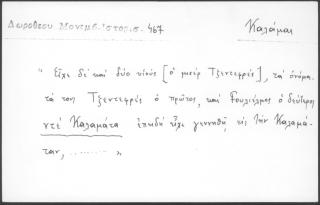 Δωροθέου Μονεμβ. Ἱστορισ. 467
Καλάμαι
" Εἶχε δὲ καὶ δύο υἱοὺς [ὁ μισὲρ Τζεντεφρές], τὰ ὀνόμα-
τά τους Τζεντεφρὲς ὁ πρῶτος, καὶ Γουλιέλμος ὁ δεύτερος
ντὲ Καλαμάτα ἐπειδὴ εἶχε γεννηθῆ εἰς τὴν Καλαμά-
ταν, ........ "